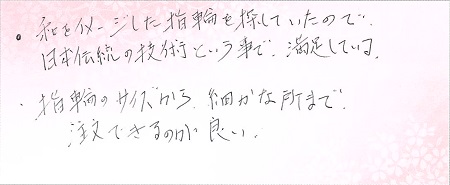 ・和をイメージした指輪を探していたので、
日本伝統の技術という事で、満足している。
・指輪のサイズから、細かな所まで、
注文できるのが良い。